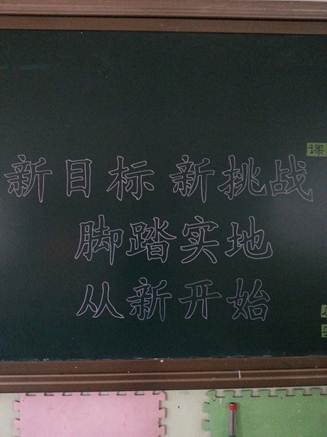 课
新目标 新挑战
脚踏实地
从新开始